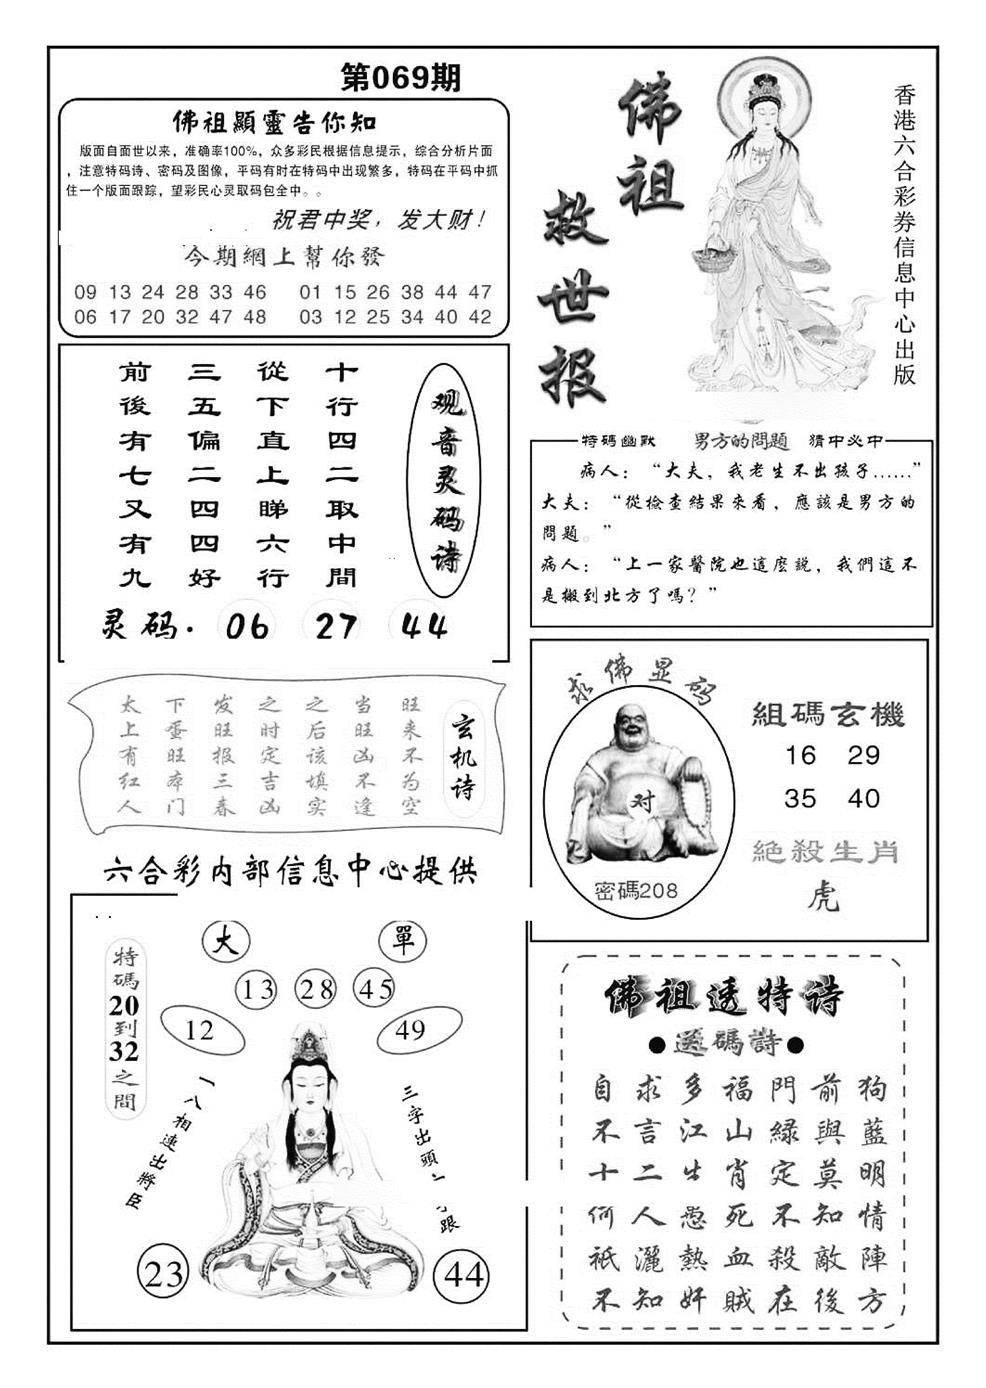 第069期
佛祖顯靈告你知
版面自面世以来，准确率100%，众多彩民根据信息提示，综合分析片面
，注意特码诗、密码及图像，平码有时在特码中出现繁多，特码在平码中抓
住一个版面跟踪，望彩民心灵取码包全中。。
祝君中奖，发大财！
今期網上幫你發
09 13 24 28 33 46 01 15 26 38 44 47
06 17 20 32 47 48 03 12 25 34 40 42
佛祖
救世报
香港六合彩券信息中心出版
观音灵码诗
十行四二取中間
從下直上睇六行
三五偏二四四好
前後有七又有九
灵码. 06 27 44
特碼幽默 男方的問題 猜中必中
病人：“大夫，我老生不出孩子……”
大夫：“從檢查結果來看，應該是男方的
問題。”
病人：“上一家醫院也這麼説，我們這不
是搬到北方了嗎？”
玄机诗
旺来不为空
当旺凶不逢
之后该填实
之时定吉凶
发旺报三春
下蛋旺本门
太上有红人
六合彩内部信息中心提供
求佛显码
对
密碼208
組碼玄機
16 29
35 40
絕殺生肖
虎
大 單
13 28 45
12 49
特碼20到32之間
一八相連出將臣
三字出頭
跟
23 44
佛祖透特诗
●送碼詩●
自求多福門前狗
不言江山緑與藍
十二生肖定莫明
何人愚死不知情
衹灑熱血殺敵陣
不知奸賊在後方